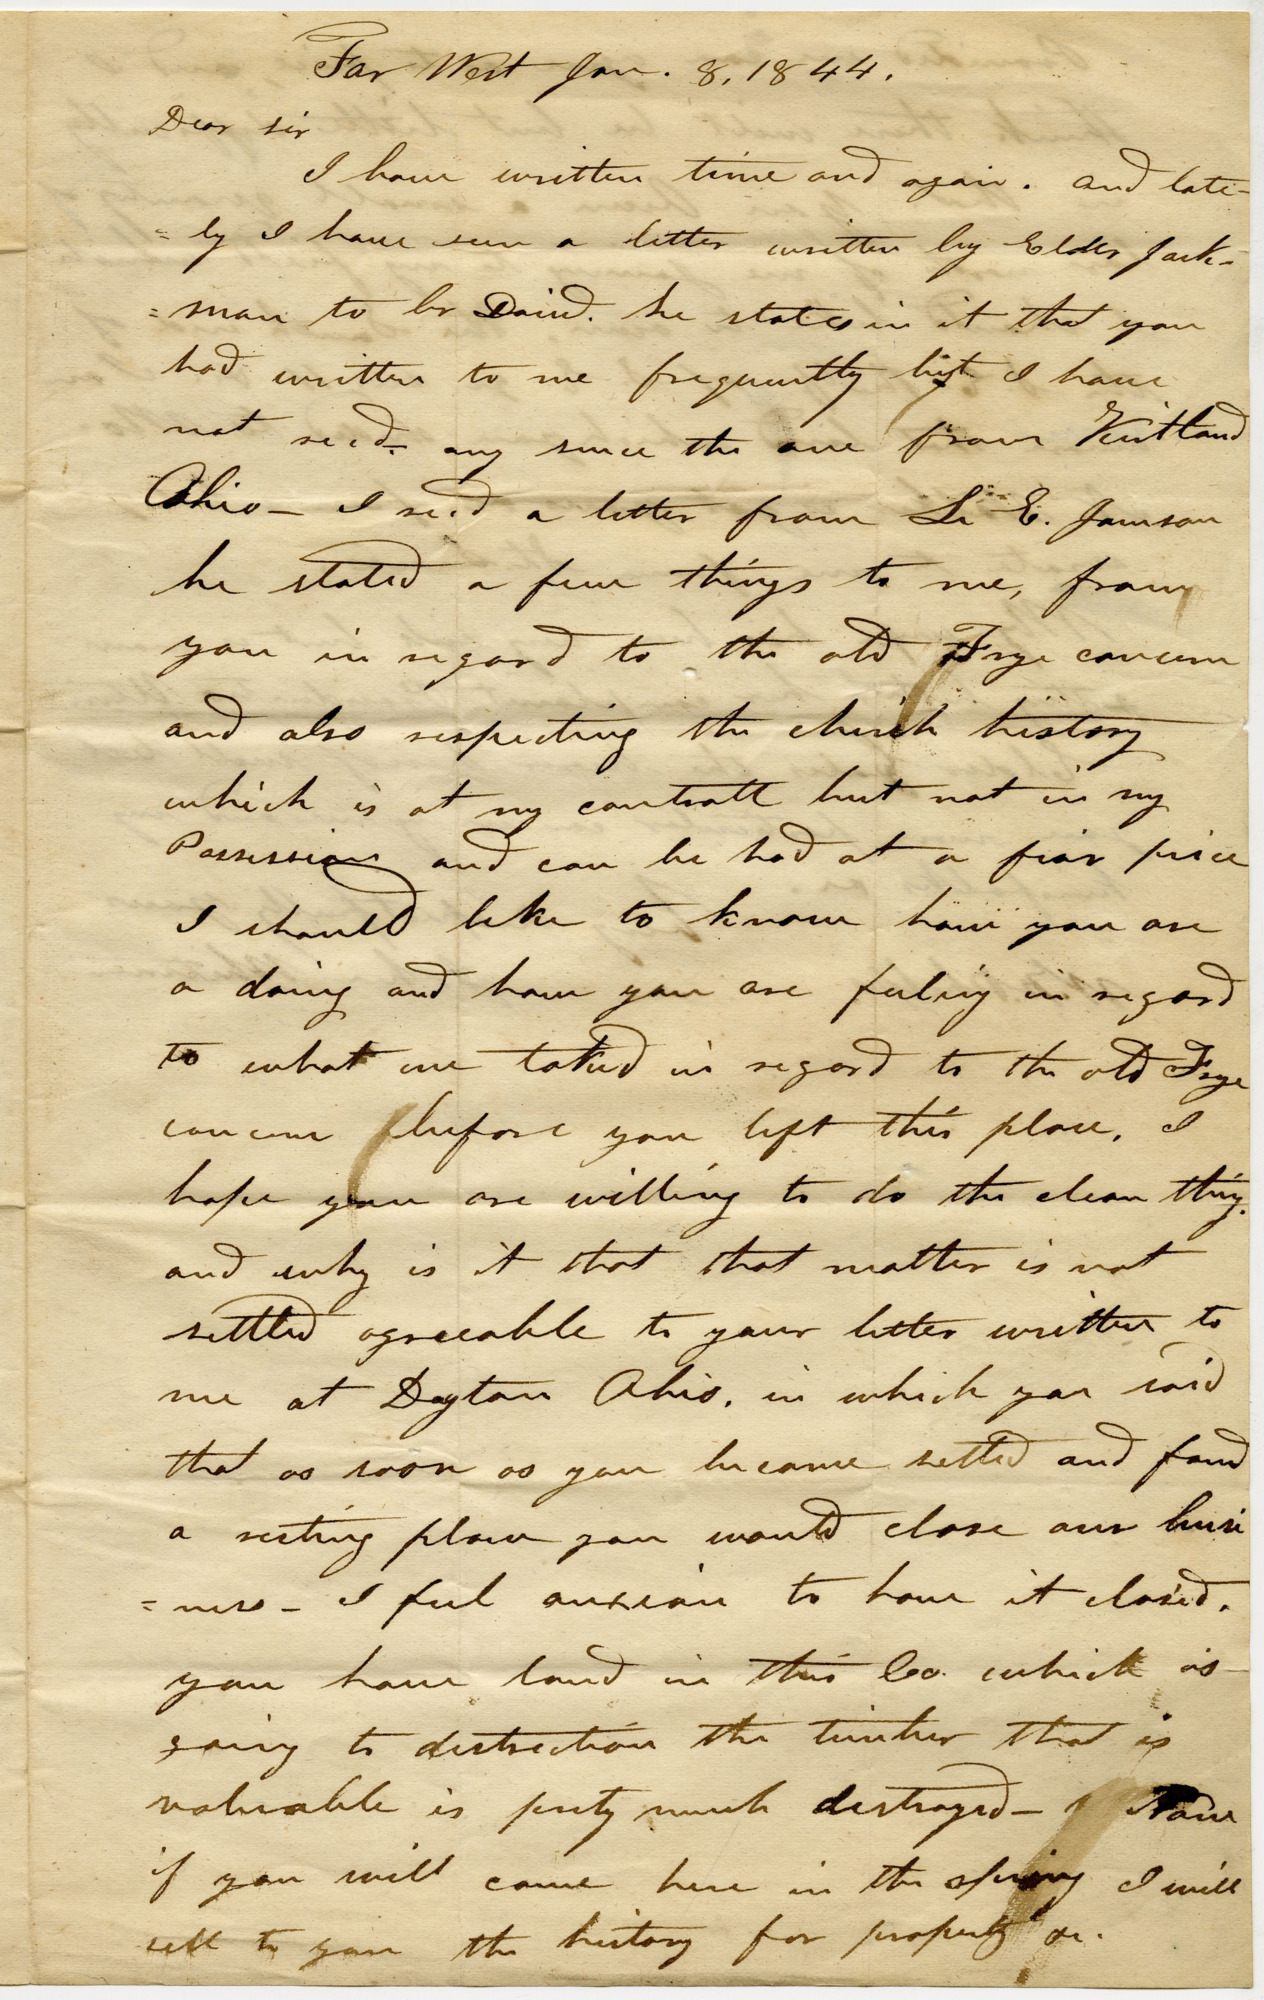 Far West Jan. 8, 1844.
Dear sir
I have written time and again. and late-
=ly I have seen a letter written by Elder Jack-
=man to br David. he states in it that you
had written to me frequently but I have
not recd. any since the one from Kirtland
Ohio - I recd a letter from E. Jamison
he stated a few things to me, from
you in regard to the old Frye concern
and also respecting the church history
which is at my controll but not in my
Possession and can be had at a fiar price
I should like to know how you are
a doing and how you are feeling in regard
to what we talked in regard to the old Frye
concern before you left this place, I
hope you are willing to do the clean thing.
and why is it that that matter is not
settled agreeable to your letter written to
me at Dayton Ohio. in which you said
that as soon as you became settled and found
a resting place you would close our busi
=ness - I feel anxious to have it closed.
you have land in this Co. which is
going to distruction the timber that is
valuable is prety much destroyed - Now
if you will come here in the spring I will
sell to you the history for property or.